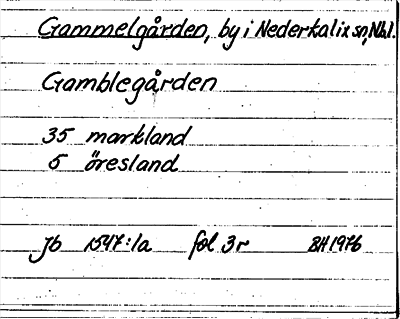 Gammelgården, by i Nederkalix sn, Nbl.
Gamblegården
35 markland
5 öresland
Jb 1547:1a fol 3r BH 1976